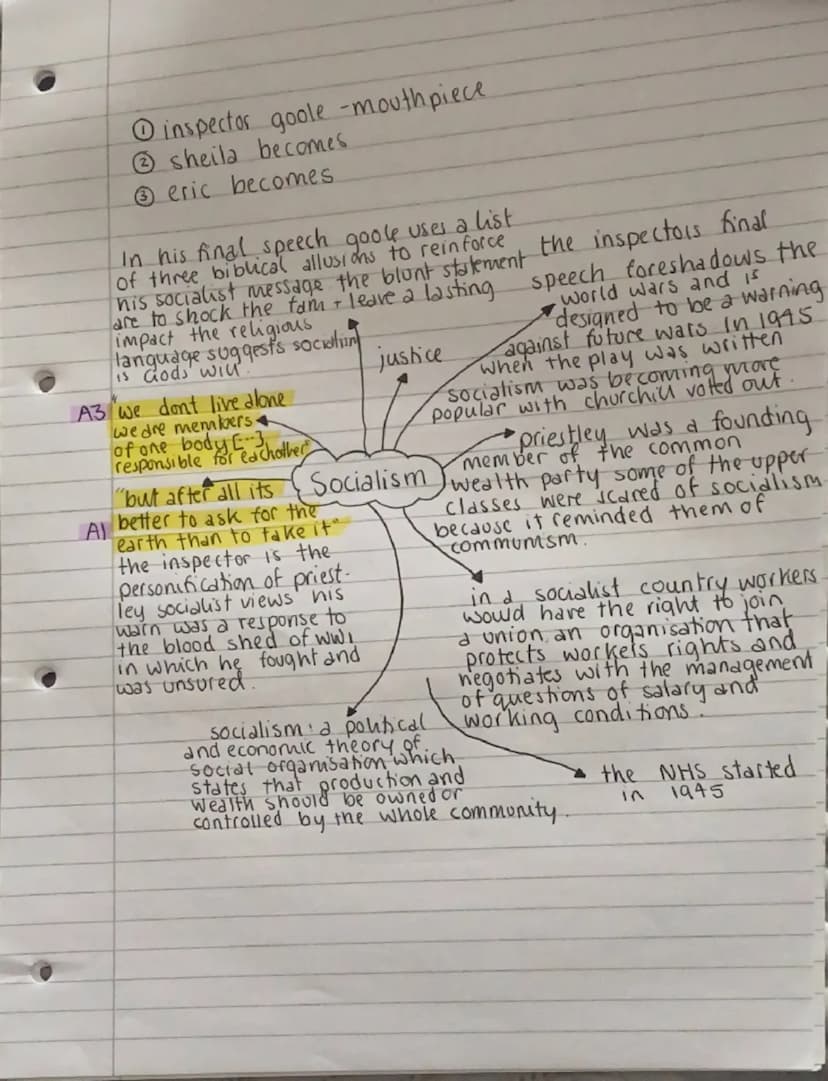 ① inspector goole - mouthpiece
② sheila becomes
③ eric becomes
In his final speech goole uses a list
of three biblical allusions to reinforce
his socialist message the blunt statement
are to shock the fam + leave a lasting
impact the religious
language suggests socialism
is Gods will
justice
the inspectors final
speech foreshadows the
world wars and is
designed to be a warning
against future wars In 1945
when the play was written
socialism was becoming more
popular with churchill voted out.
A3 "we dont live alone
we are members
of one body [...]
responsible for eachother"
Socialism
priestley was a founding
member of the common
wealth party some of the upper
classes were scared of socialism
because it reminded them of
communism.
"but after all its
A1 better to ask for the
earth than to take it"
the inspector is the
personification of priest-
ley socialist views his
warn was a response to
the blood shed of WW1
in which he fought and
was unsured.
in a socialist country workers
would have the right to join
a union an organisation that
protects workers rights and
negotiates with the management
of questions of salary and
working conditions.
socialism: a political
and economic theory of
social organisation which
states that production and
wealth should be owned or
controlled by the whole community.
the NHS started
in 1945